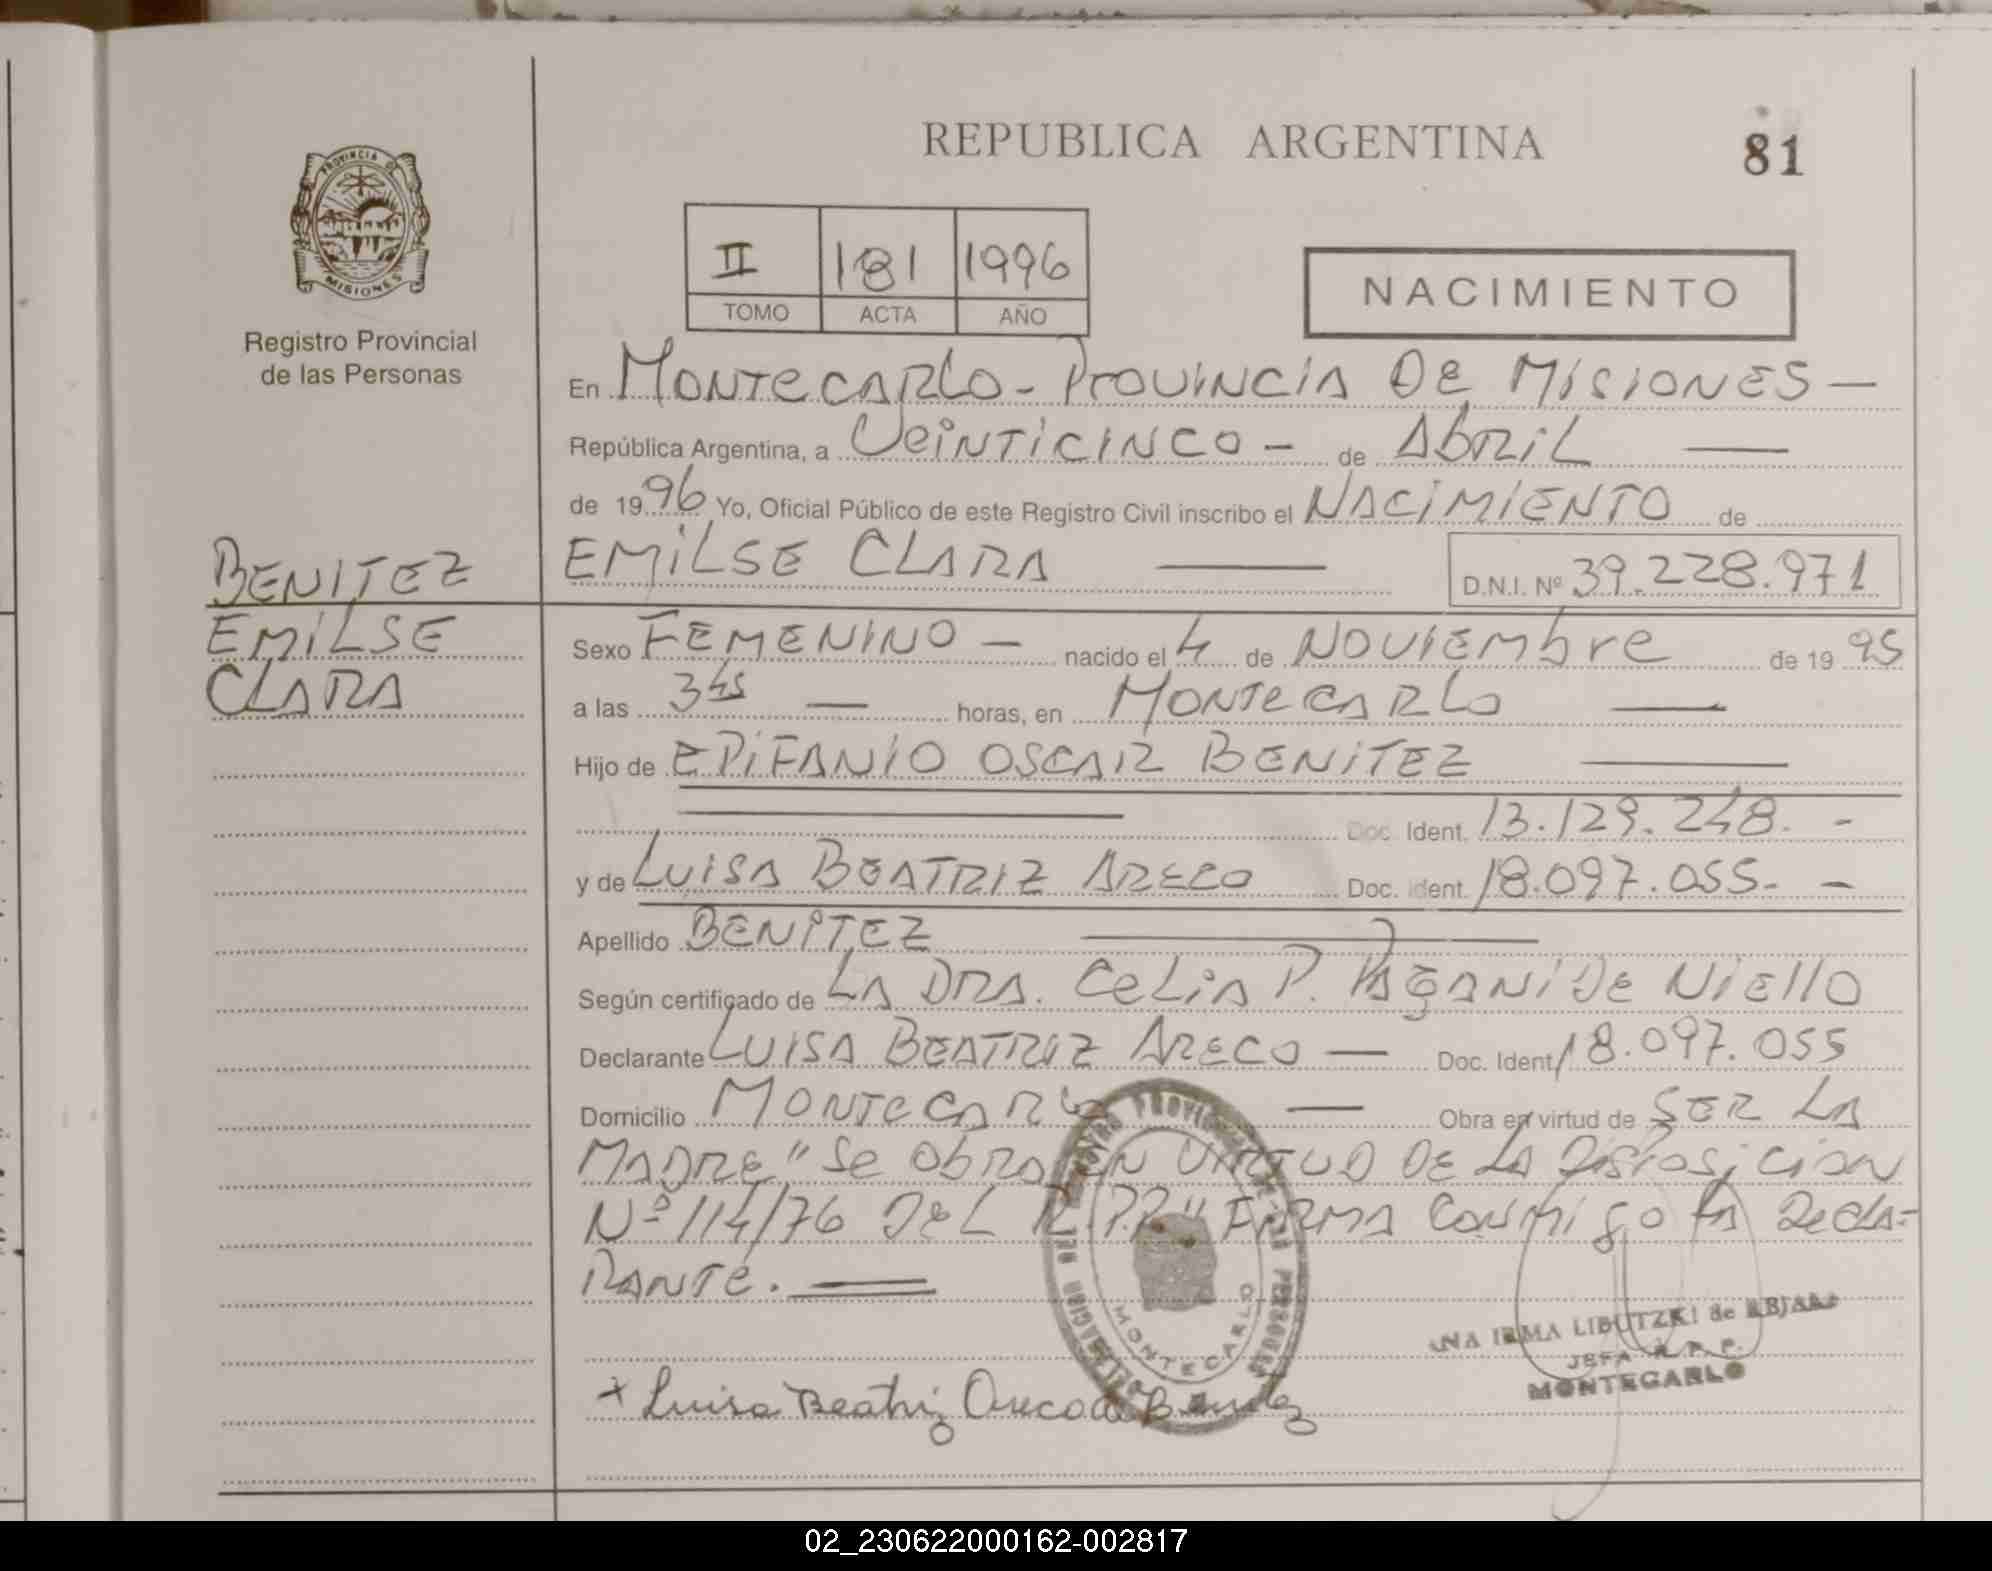 REPUBLICA ARGENTINA
81
PROVINCIA DE
MISIONES
Registro Provincial
de las Personas
II 181 1996
TOMO ACTA AÑO
NACIMIENTO
En MONTECARLO - PROVINCIA DE MISIONES —
República Argentina, a VEINTICINCO - de ABRIL —
de 1996 Yo, Oficial Público de este Registro Civil inscribo el NACIMIENTO de
BENITEZ
EMILSE CLARA — D.N.I. Nº 39.228.971
EMILSE
CLARA
Sexo FEMENINO — nacido el 4 de NOVIEMbre de 19 95
a las 3hs — horas, en MONTECARLO —
Hijo de EPIFANIO OSCAR BENITEZ —
Doc. Ident. 13.129.248. -
y de LUISA BEATRIZ ARECO Doc. Ident. 18.097.055. -
Apellido BENITEZ —
Según certificado de LA DRA. CELIA P. PAGANI DE NIELLO
Declarante LUISA BEATRIZ ARECO — Doc. Ident. 18.097.055
Domicilio MONTECARLO — Obra en virtud de SER LA
MADRE" Se obra en VIRTUD DE LA DISPOSICION
Nº 114/76 DEL R.P.P." FIRMA CONMIGO LA DECLA-
RANTE.
MONTECARLO
IRMA LIBUTZKI de
JEFA R. P. P.
MONTECARLO
x Luisa Beatriz Areco de Benitez
02_230622000162-002817